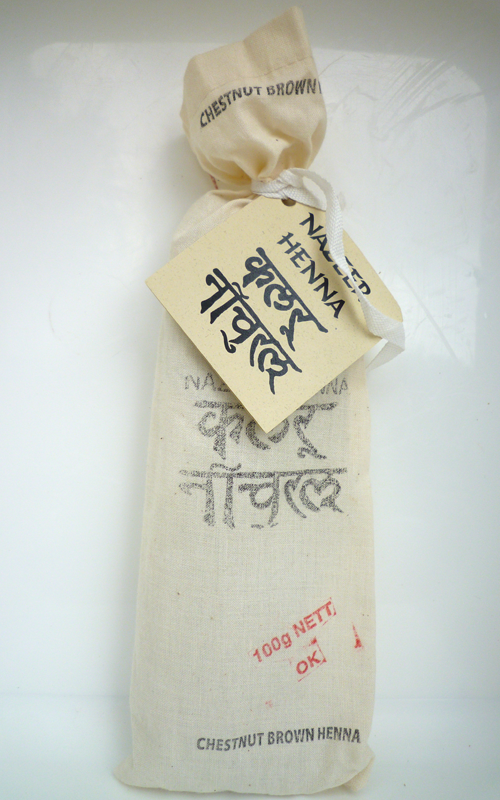 CHESTNUT BROWN
NAZEER
HENNA
कलर
नॉचुरल
कलर
नॉचुरल
100g NETT
OK
CHESTNUT BROWN HENNA